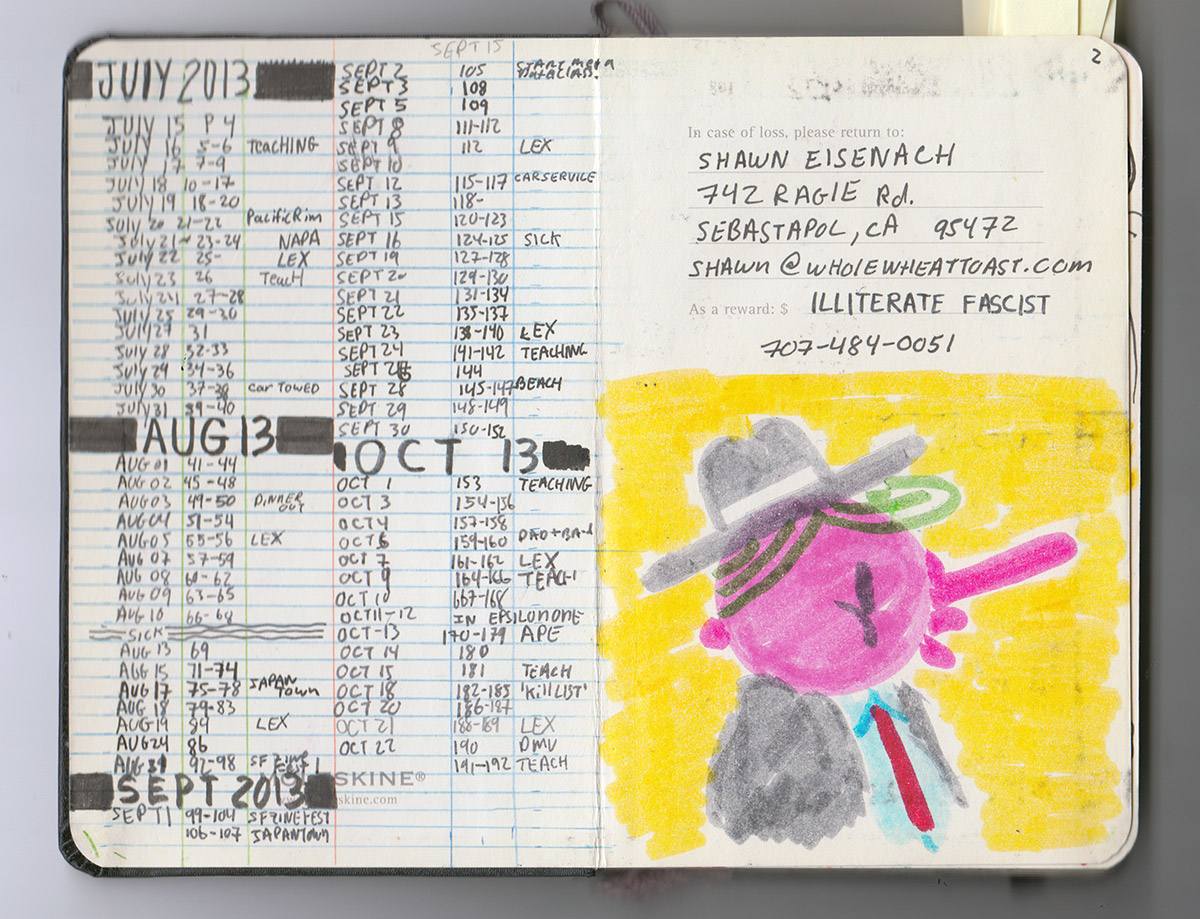 SEPT 15
JULY 2013
JULY 15 P 4
JULY 16 5-6 TEACHING
JULY 17 7-9
JULY 18 10-17
JULY 19 18-20
JULY 20 21-22 PacificRim
JULY 21 23-24 NAPA
JULY 22 25- LEX
JULY 23 26 TEACH
JULY 24 27-28
JULY 25 29-30
JULY 27 31
JULY 28 32-33
JULY 29 34-36
JULY 30 37-38 CAR TOWED
JULY 31 39-40
AUG 13
AUG 01 41-44
AUG 02 45-48
AUG 03 49-50 DINNER OUT
AUG 04 51-54
AUG 05 55-56 LEX
AUG 07 57-59
AUG 08 60-62
AUG 09 63-65
AUG 10 66-68
SICK
AUG 13 69
AUG 15 71-74
AUG 17 75-78 JAPAN TOWN
AUG 18 79-83
AUG 19 84 LEX
AUG 24 86
AUG 31 92-98 SF
SEPT 2013
SEPT 1 99-104 SF ZINEFEST
106-107 JAPANTOWN
SEPT 2 105 START
SEPT 3 108
SEPT 5 109
SEPT 8 111-112
SEPT 9 112 LEX
SEPT 10
SEPT 12 115-117 CARSERVICE
SEPT 13 118-
SEPT 15 120-123
SEPT 16 124-125 SICK
SEPT 19 127-128
SEPT 20 129-130
SEPT 21 131-134
SEPT 22 135-137
SEPT 23 138-140 LEX
SEPT 24 141-142 TEACHING
SEPT 144
SEPT 28 145-147 BEACH
SEPT 29 148-149
SEPT 30 150-152
OCT 13
OCT 1 153 TEACHING
OCT 3 154-156
OCT 4 157-158
OCT 6 159-160 DAD+
OCT 7 161-162 LEX
OCT 9 164-166 TEACH
OCT 10 167-168
OCT 11-12 IN EPSILON ONE
OCT-13 170-179 APE
OCT 14 180
OCT 15 181 TEACH
OCT 18 182-185 'KILL LIST'
OCT 20 186-187
OCT 21 188-189 LEX
OCT 22 190 DMV
191-192 TEACH
SKINE®
skine.com
2
In case of loss, please return to:
SHAWN EISENACH
742 RAGLE Rd.
SEBASTAPOL, CA 95472
SHAWN@WHOLEWHEATTOAST.COM
As a reward: $ ILLITERATE FASCIST
707-484-0051